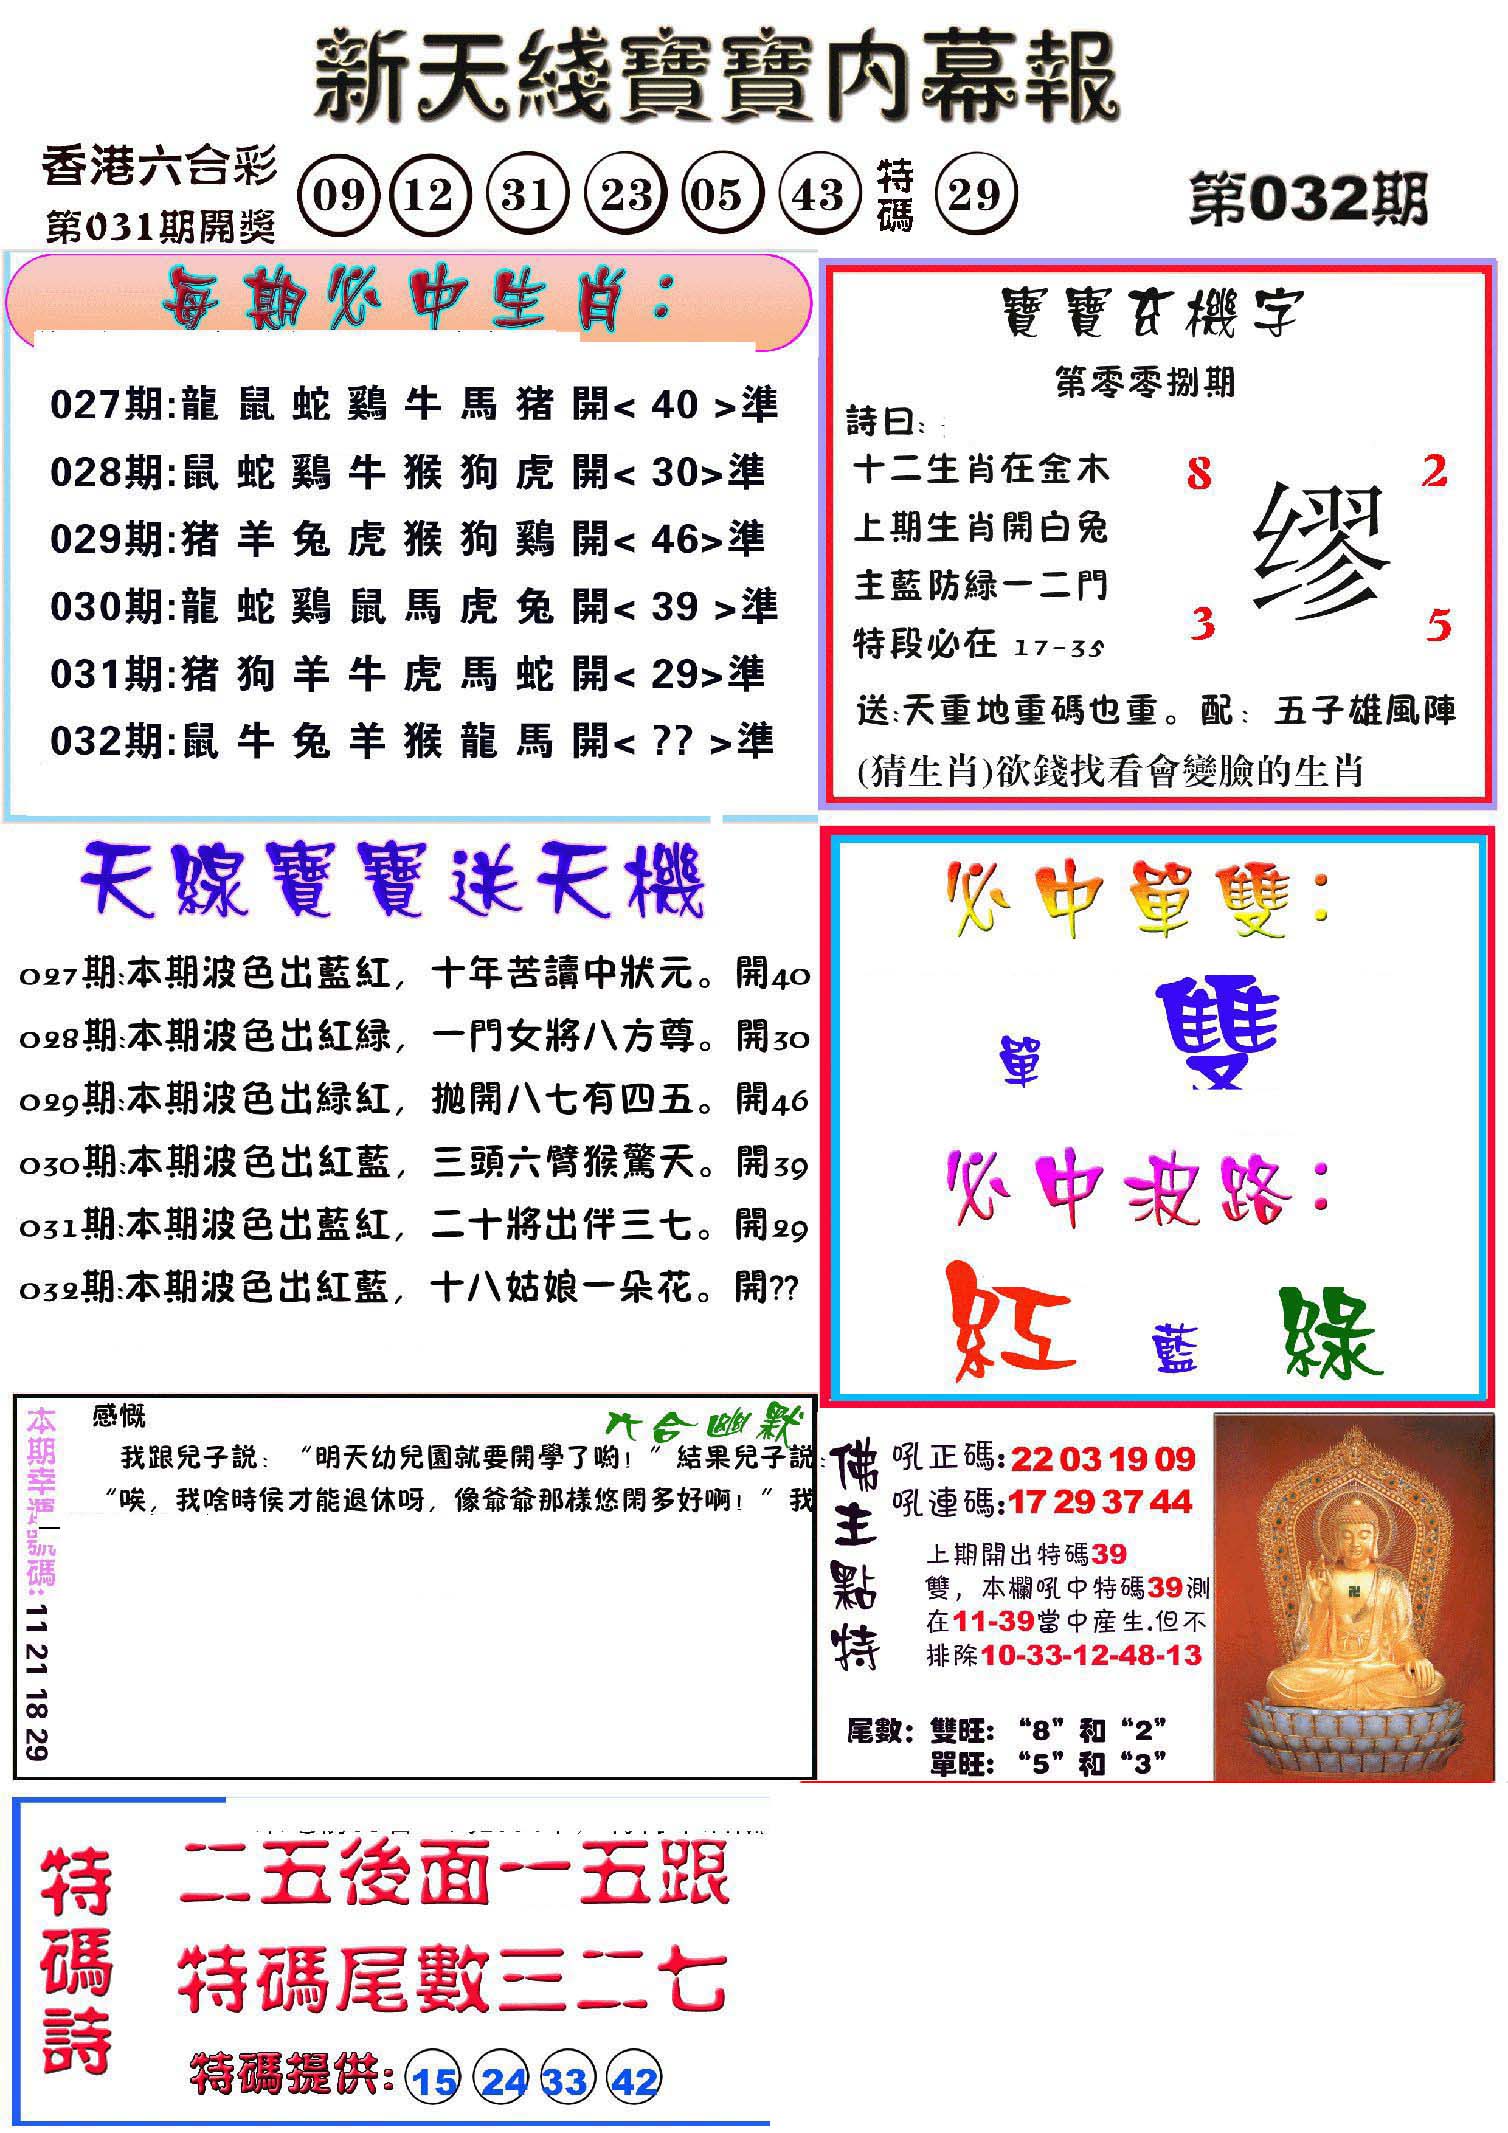 新天綫寶寶内幕報
香港六合彩
第031期開獎
09 12 31 23 05 43 特碼 29
第032期
每期必中生肖：
027期:龍 鼠 蛇 鷄 牛 馬 猪 開< 40 >準
028期:鼠 蛇 鷄 牛 猴 狗 虎 開< 30>準
029期:猪 羊 兔 虎 猴 狗 鷄 開< 46>準
030期:龍 蛇 鷄 鼠 馬 虎 兔 開< 39 >準
031期:猪 狗 羊 牛 虎 馬 蛇 開< 29>準
032期:鼠 牛 兔 羊 猴 龍 馬 開< ?? >準
寶寶玄機字
第零零捌期
詩曰:
十二生肖在金木
上期生肖開白兔
主藍防緑一二門
特段必在 17-35
8 2
缪
3 5
送:天重地重碼也重。配: 五子雄風陣
(猜生肖)欲錢找看會變臉的生肖
天線寶寶送天機
027期:本期波色出藍紅, 十年苦讀中狀元。開40
028期:本期波色出紅緑, 一門女將八方尊。開30
029期:本期波色出緑紅, 拋開八七有四五。開46
030期:本期波色出紅藍, 三頭六臂猴驚天。開39
031期:本期波色出藍紅, 二十將出伴三七。開29
032期:本期波色出紅藍, 十八姑娘一朵花。開??
必中單雙：
單 雙
必中波路：
紅 藍 綠
本期幸運號碼: 11 21 18 29
六合幽默
感慨
我跟兒子説: “明天幼兒園就要開學了喲! ” 結果兒子説:
“唉, 我啥時侯才能退休呀, 像爺爺那樣悠閑多好啊! ” 我
佛主點特
吼正碼:22 03 19 09
吼連碼:17 29 37 44
上期開出特碼39
雙, 本欄吼中特碼39測
在11-39當中産生.但不
排除10-33-12-48-13
尾數: 雙旺: “8” 和 “2”
單旺: “5” 和 “3”
特碼詩
二五後面一五跟
特碼尾數三二七
特碼提供: 15 24 33 42